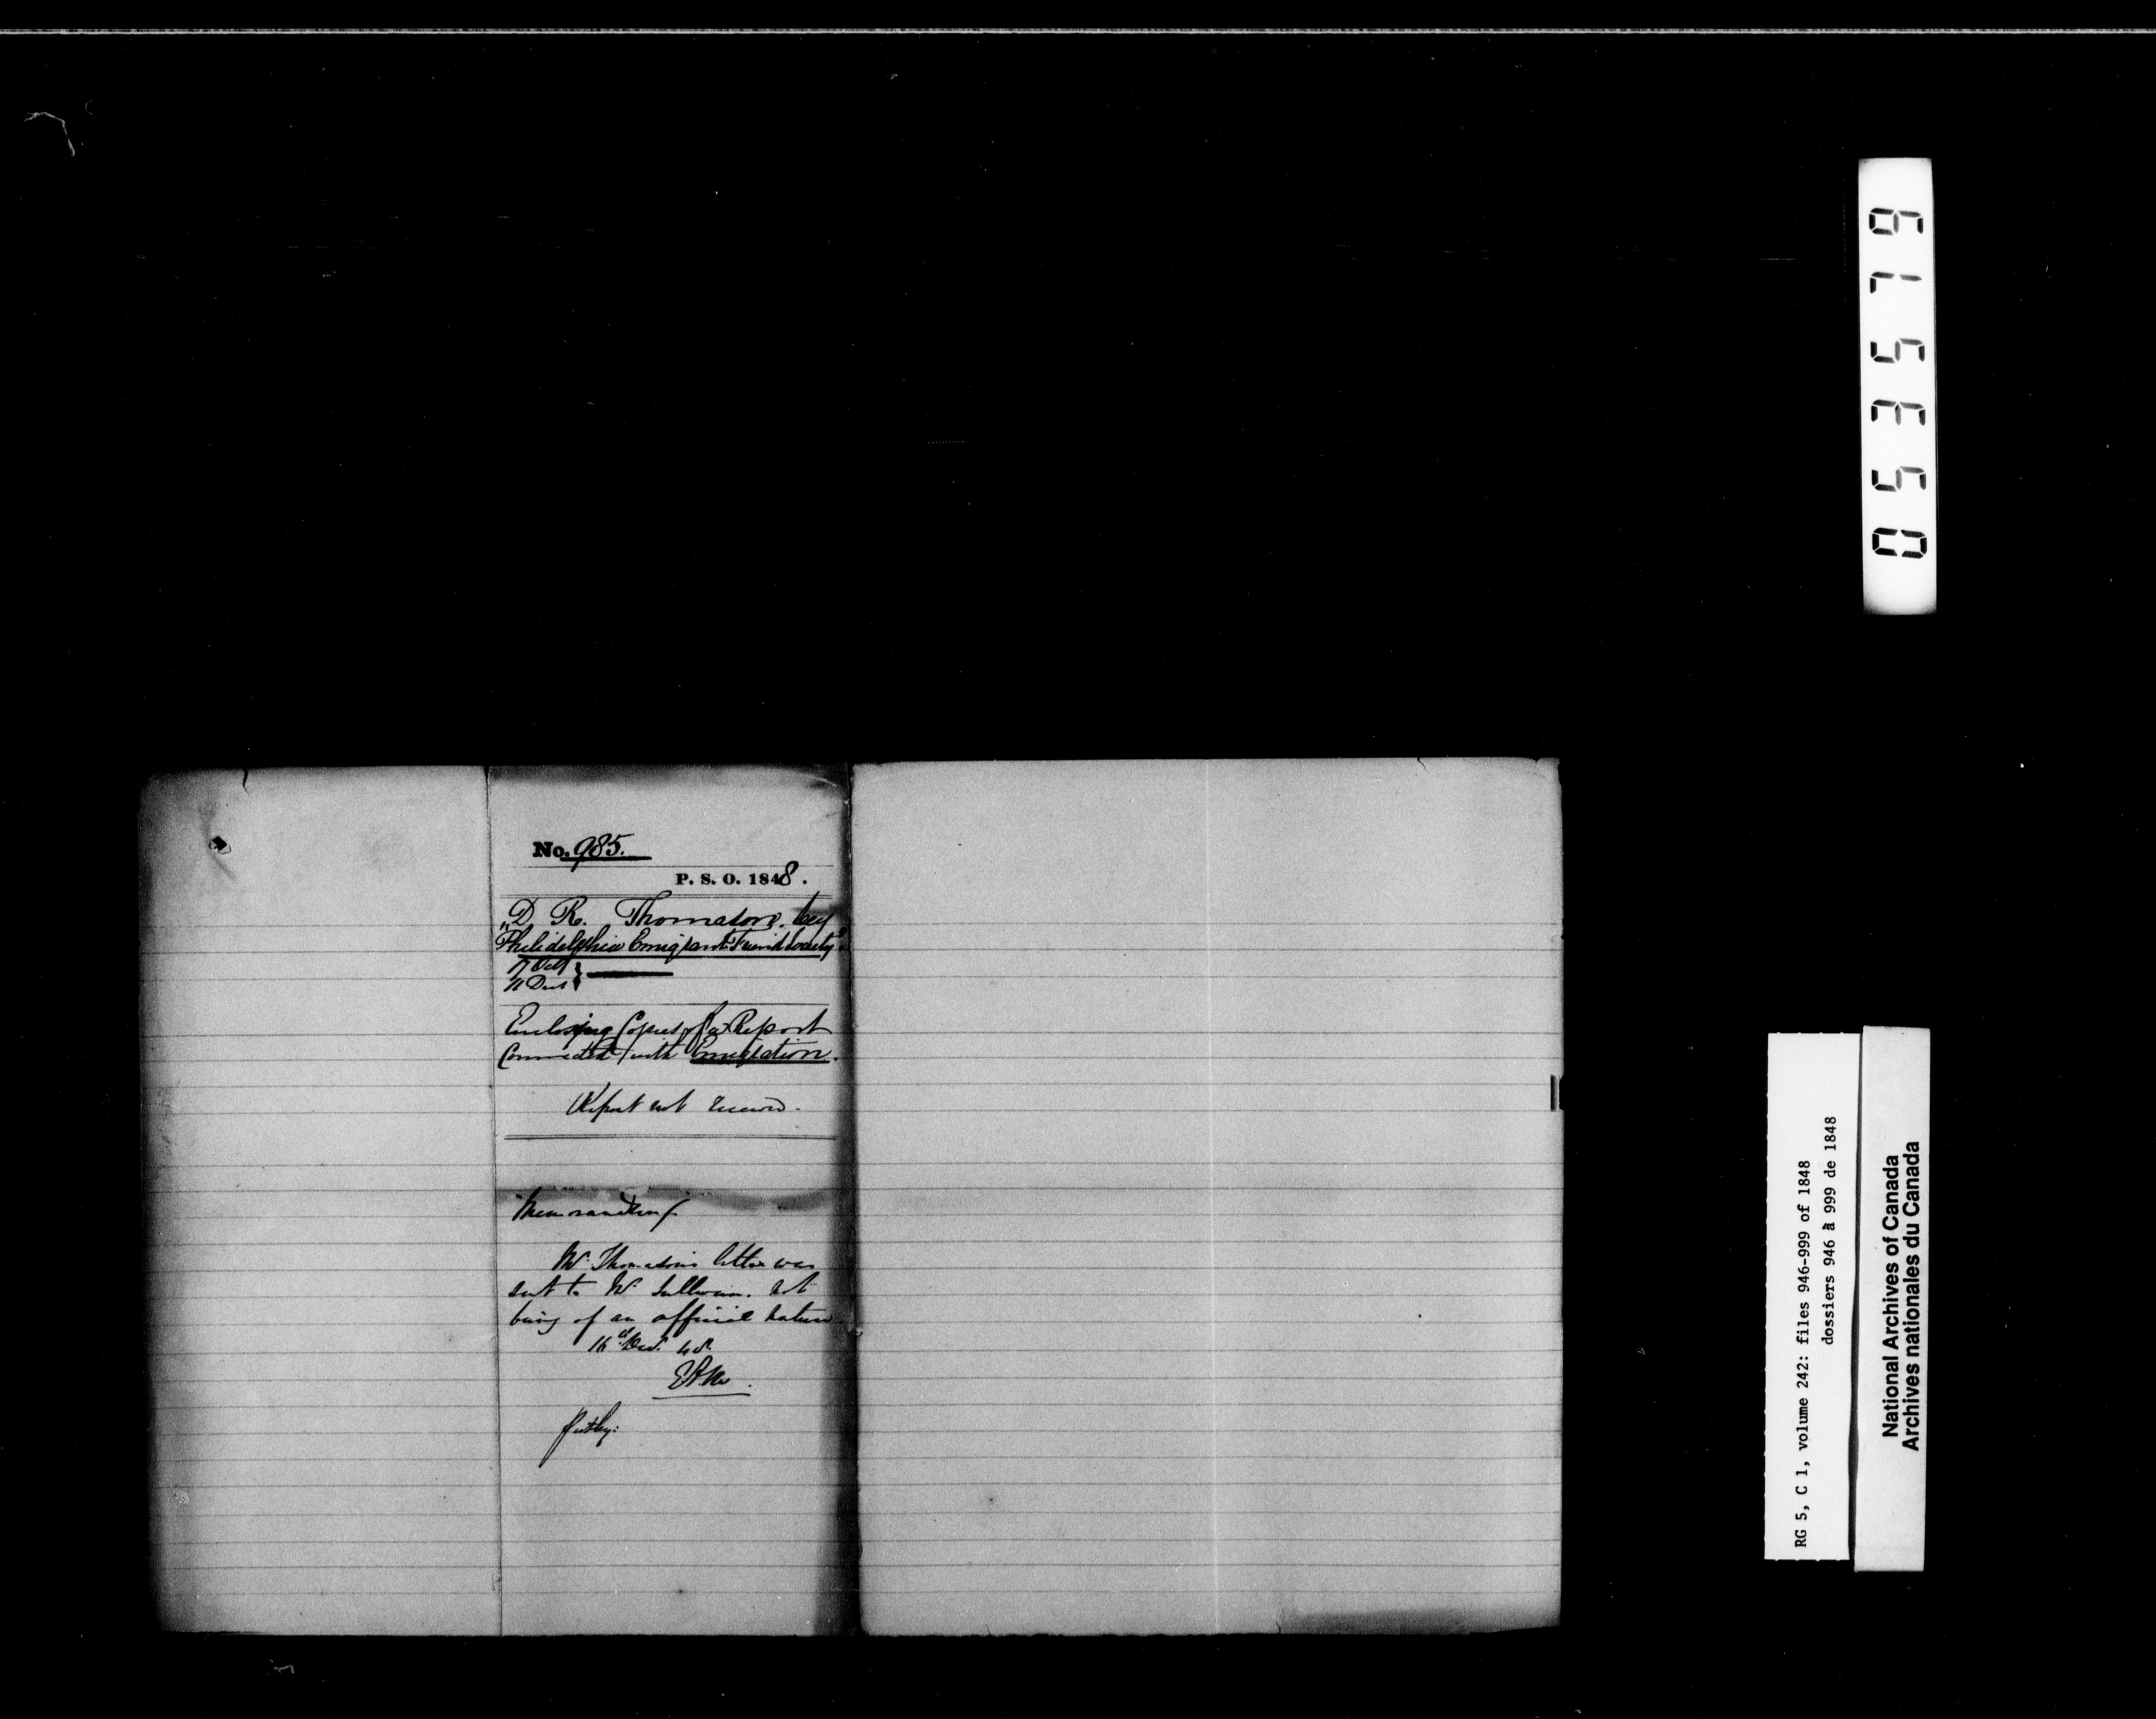 No. 985.
P. S. O. 1848.
D R. Thomason. Secy
"Philidelphia Emigrant Friend Society"
17 Octr
11 Decr
Enclosing Copies of a Report
Connected with Emigration.
Report not received.
Memorandum
Mr Thomason's letter was
sent to Mr Sullivan. not
being of an official nature
16th Decr. 48.
053519
RG 5, C 1, volume 242: files 946-999 of 1848
dossiers 946 à 999 de 1848
National Archives of Canada
Archives nationales du Canada